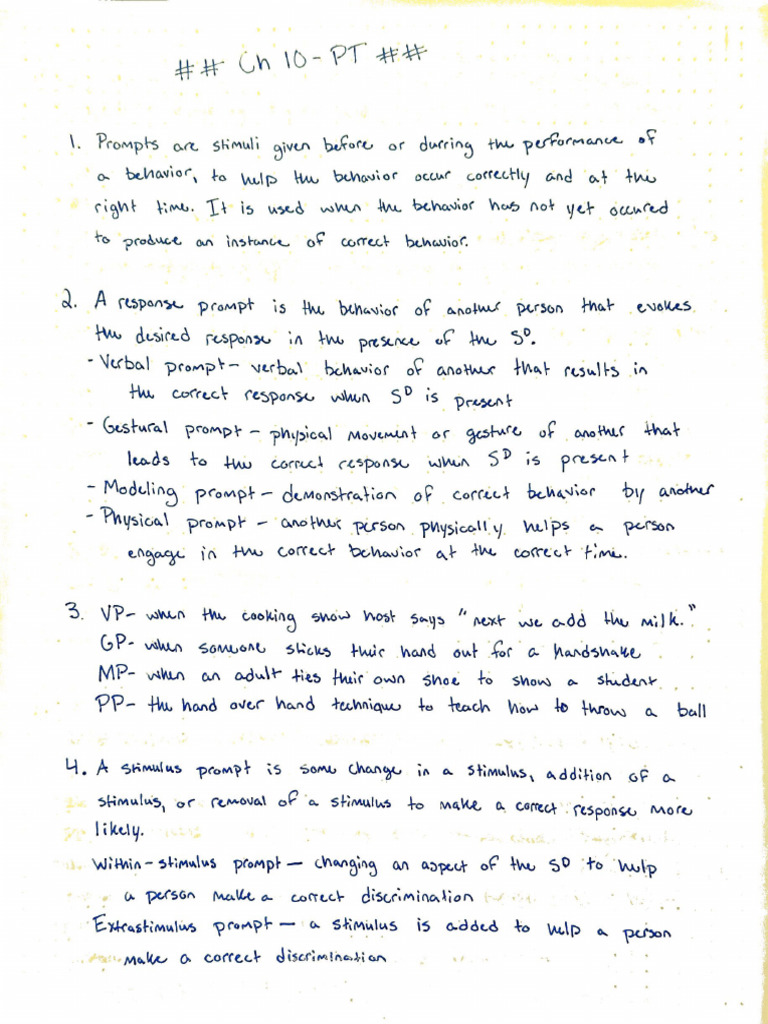 ## Ch 10 - PT ##
1. Prompts are stimuli given before or durring the performance of
a behavior, to help the behavior occur correctly and at the
right time. It is used when the behavior has not yet occured
to produce an instance of correct behavior.
2. A response prompt is the behavior of another person that evokes
the desired response in the presence of the Sᴰ.
- Verbal prompt - verbal behavior of another that results in
the correct response when Sᴰ is present
- Gestural prompt - physical movement or gesture of another that
leads to the correct response when Sᴰ is present
- Modeling prompt - demonstration of correct behavior by another
- Physical prompt - another person physically helps a person
engage in the correct behavior at the correct time.
3. VP - when the cooking show host says "next we add the milk."
GP - when someone sticks their hand out for a handshake
MP - when an adult ties their own shoe to show a student
PP - the hand over hand technique to teach how to throw a ball
4. A stimulus prompt is some change in a stimulus, addition of a
stimulus, or removal of a stimulus to make a correct response more
likely.
Within-stimulus prompt - changing an aspect of the Sᴰ to help
a person make a correct discrimination
Extrastimulus prompt - a stimulus is added to help a person
make a correct discrimination